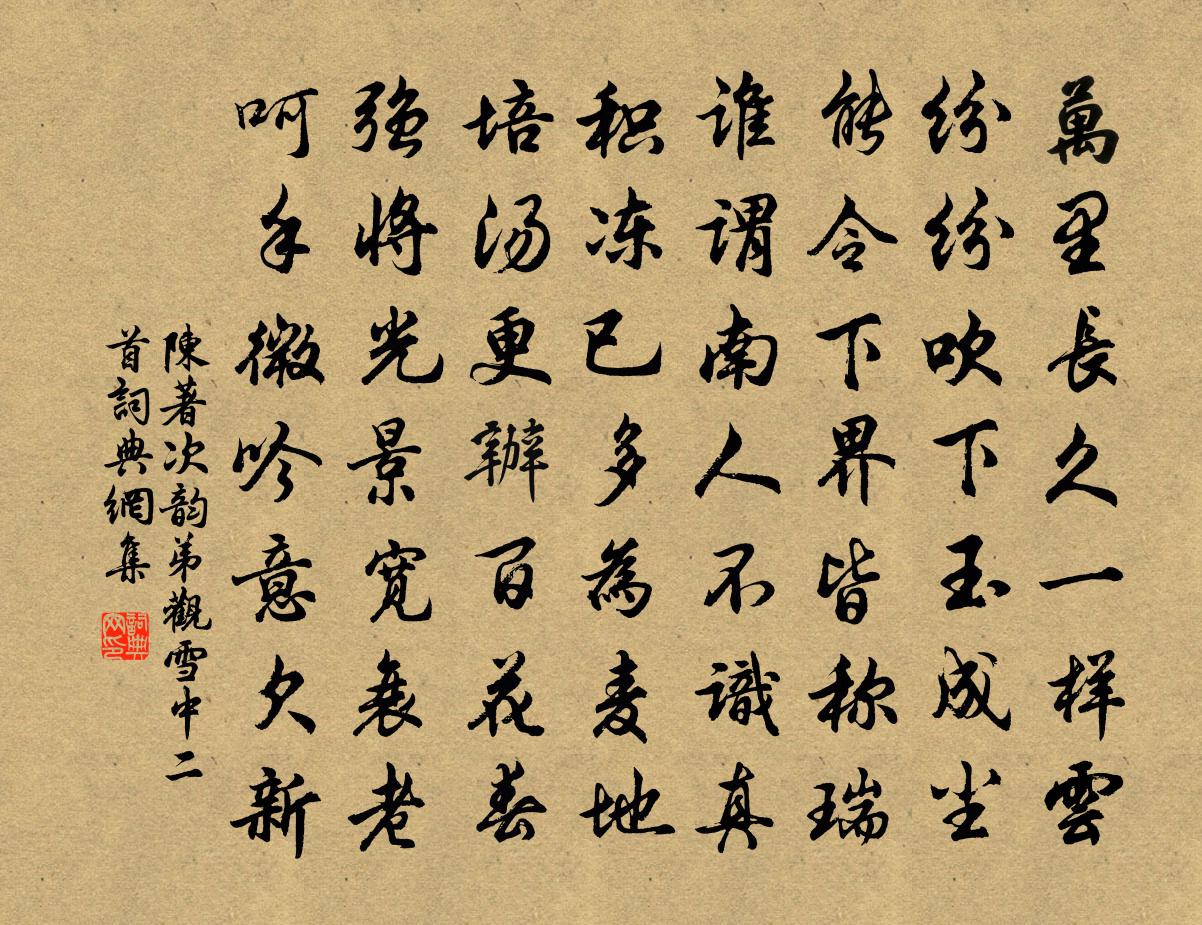 萬里長久一样雲
纷纷吹下玉成尘
能令下界皆称瑞
谁謂南人不識真
积冻已多為麦地
培汤更辦百花春
强將光景宽衰老
呵手微吟意欠新
陳著次韵弟觀雪中二
首詞典網集
詞典网印